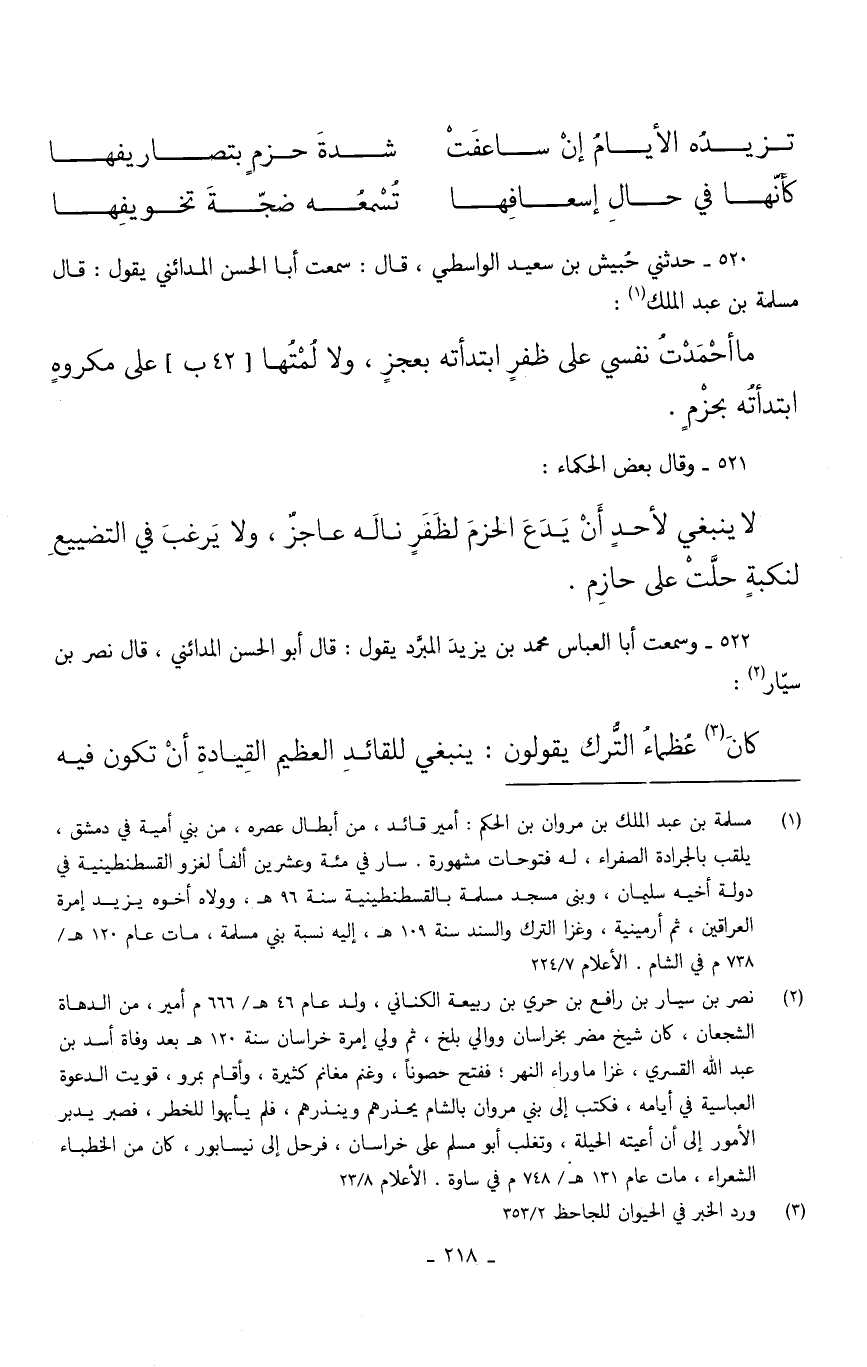 تزيدُه الأيامُ إنْ ساعفَتْ شدةَ حزمٍ بتصاريفها
كأنّها في حالِ إسعافِها تُسْمعُه ضجّةَ تخويفِها
٥٢٠ ـ حدثني حُبيش بن سعيد الواسطي ، قال : سمعت أبا الحسن المدائني يقول : قال
مسلمة بن عبد الملك(١) :
ماأحْمَدْتُ نفسي على ظفرٍ ابتدأته بعجزٍ ، ولا لُمْتُها [ ٤٢ ب ] على مكروهٍ
ابتدأتُه بحزْمٍ .
٥٢١ ـ وقال بعض الحكماء :
لا ينبغي لأحدٍ أَنْ يَدَعَ الحزمَ لظَفَرٍ نالَه عاجزٌ ، ولا يَرغبَ في التضييعِ
لنكبةٍ حلَّتْ على حازِم .
٥٢٢ ـ وسمعت أبا العباس محمد بن يزيدَ المبرَّد يقول : قال أبو الحسن المدائني ، قال نصر بن
سيّار(٢) :
كانَ(٣) عُظماءُ التُّرك يقولون : ينبغي للقائدِ العظيم القِيادةِ أنْ تكون فيه
(١) مسلمة بن عبد الملك بن مروان بن الحكم : أمير قائد ، من أبطال عصره ، من بني أمية في دمشق ،
يلقب بالجرادة الصفراء ، له فتوحات مشهورة . سار في مئة وعشرين ألفاً لغزو القسطنطينية في
دولة أخيه سليمان ، وبنى مسجد مسلمة بالقسطنطينية سنة ٩٦ هـ ، وولاه أخوه يزيد إمرة
العراقين ، ثم أرمينية ، وغزا الترك والسند سنة ١٠٩ هـ ، إليه نسبة بني مسلمة ، مات عام ١٢٠ هـ/
٧٣٨ م في الشام . الأعلام ٢٢٤/٧
(٢) نصر بن سيار بن رافع بن حري بن ربيعة الكناني ، ولد عام ٤٦ هـ/ ٦٦٦ م أمير ، من الدهاة
الشجعان ، كان شيخ مضر بخراسان ووالي بلخ ، ثم ولي إمرة خراسان سنة ١٢٠ هـ بعد وفاة أسد بن
عبد الله القسري ، غزا ماوراء النهر ؛ ففتح حصوناً ، وغنم مغانم كثيرة ، وأقام بمرو ، قويت الدعوة
العباسية في أيامه ، فكتب إلى بني مروان بالشام يحذرهم وينذرهم ، فلم يأبهوا للخطر ، فصبر يدبر
الأمور إلى أن أعيته الحيلة ، وتغلب أبو مسلم على خراسان ، فرحل إلى نيسابور ، كان من الخطباء
الشعراء ، مات عام ١٣١ هـ/ ٧٤٨ م في ساوة . الأعلام ٢٣/٨
(٣) ورد الخبر في الحيوان للجاحظ ٣٥٣/٢
ـ ٢١٨ ـ